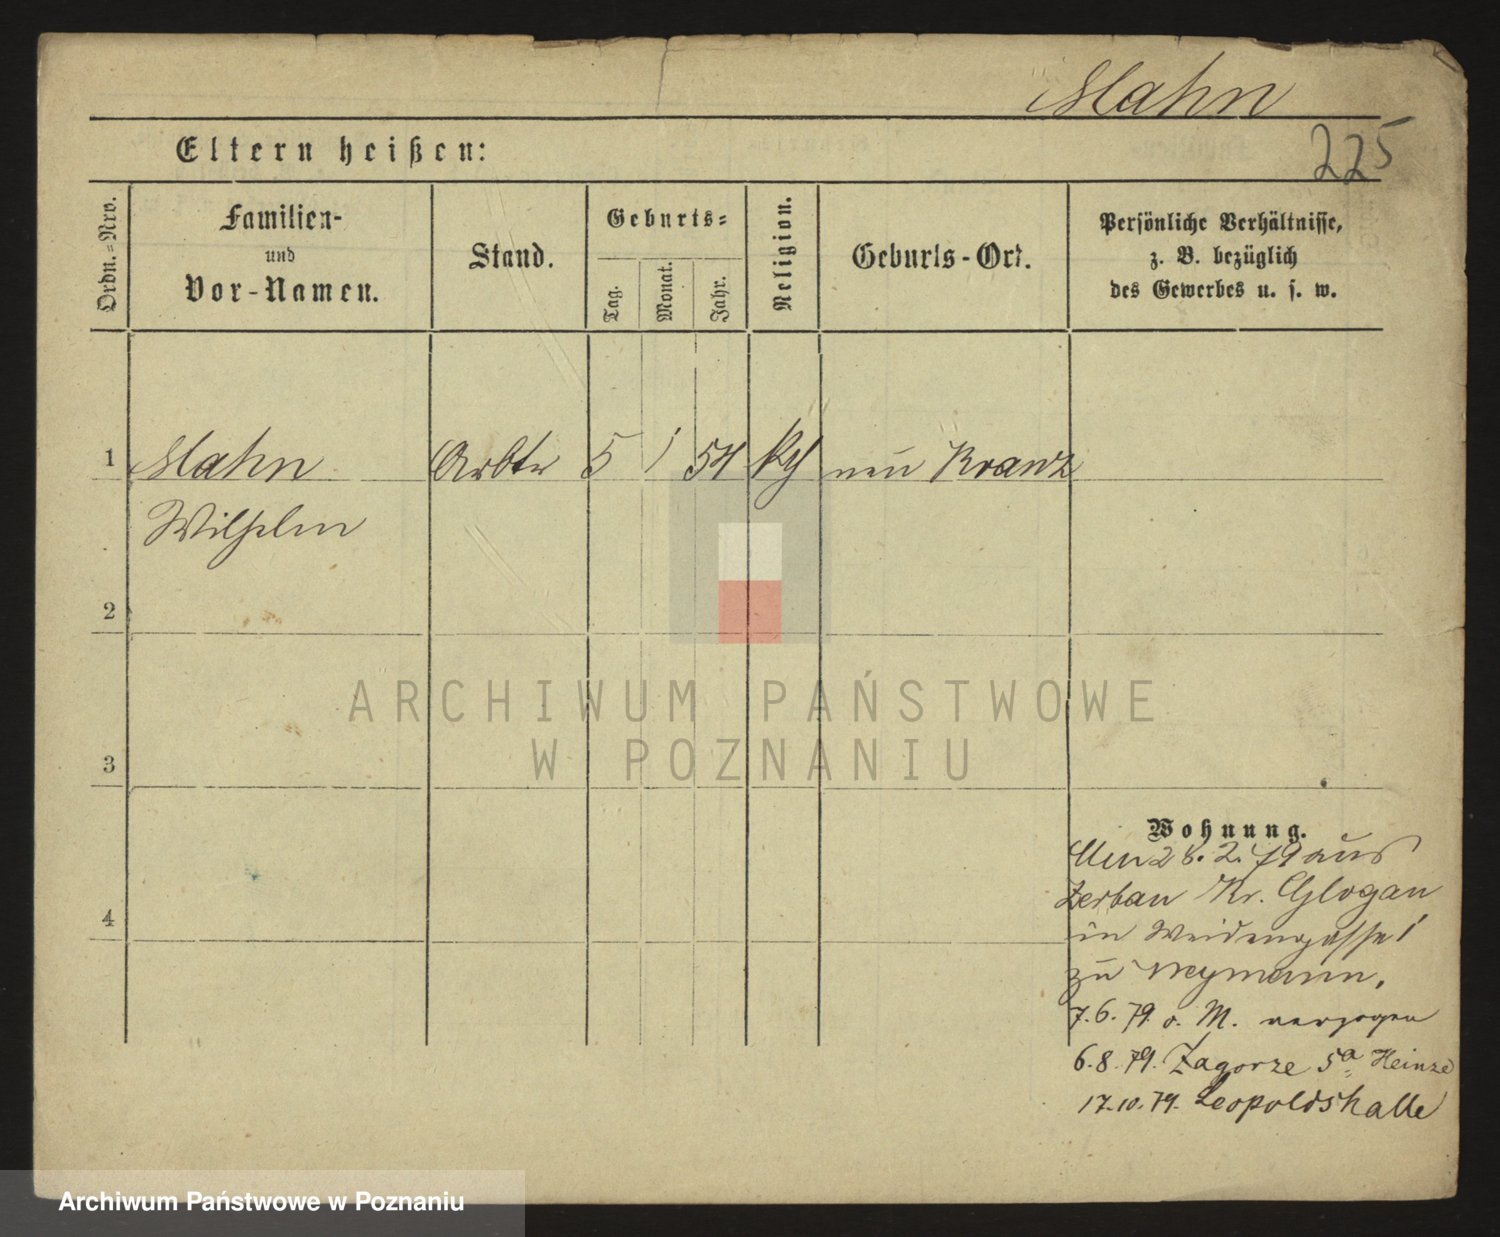 Mahn
225
Eltern heißen:
Ordn.=Nro.
Familien-
und
Vor-Namen.
Stand.
Geburts=
Tag.
Monat.
Jahr.
Religion.
Geburts-Ort.
Persönliche Verhältnisse,
z. B. bezüglich
des Gewerbes u. s. w.
1 Mahn Arbtr 5 1 54 neu Kranz
Wilhelm
2
3
4
ARCHIWUM PAŃSTWOWE
W POZNANIU
Wohnung.
28.2.79 aus
Zerbau Kr. Glogau
in Weidengasse 1
zu Neymann.
7.6.79. o. M. verzogen
6.8.79. Zagorze 5a Heinze
17.10.79. Leopoldshalle
Archiwum Państwowe w Poznaniu